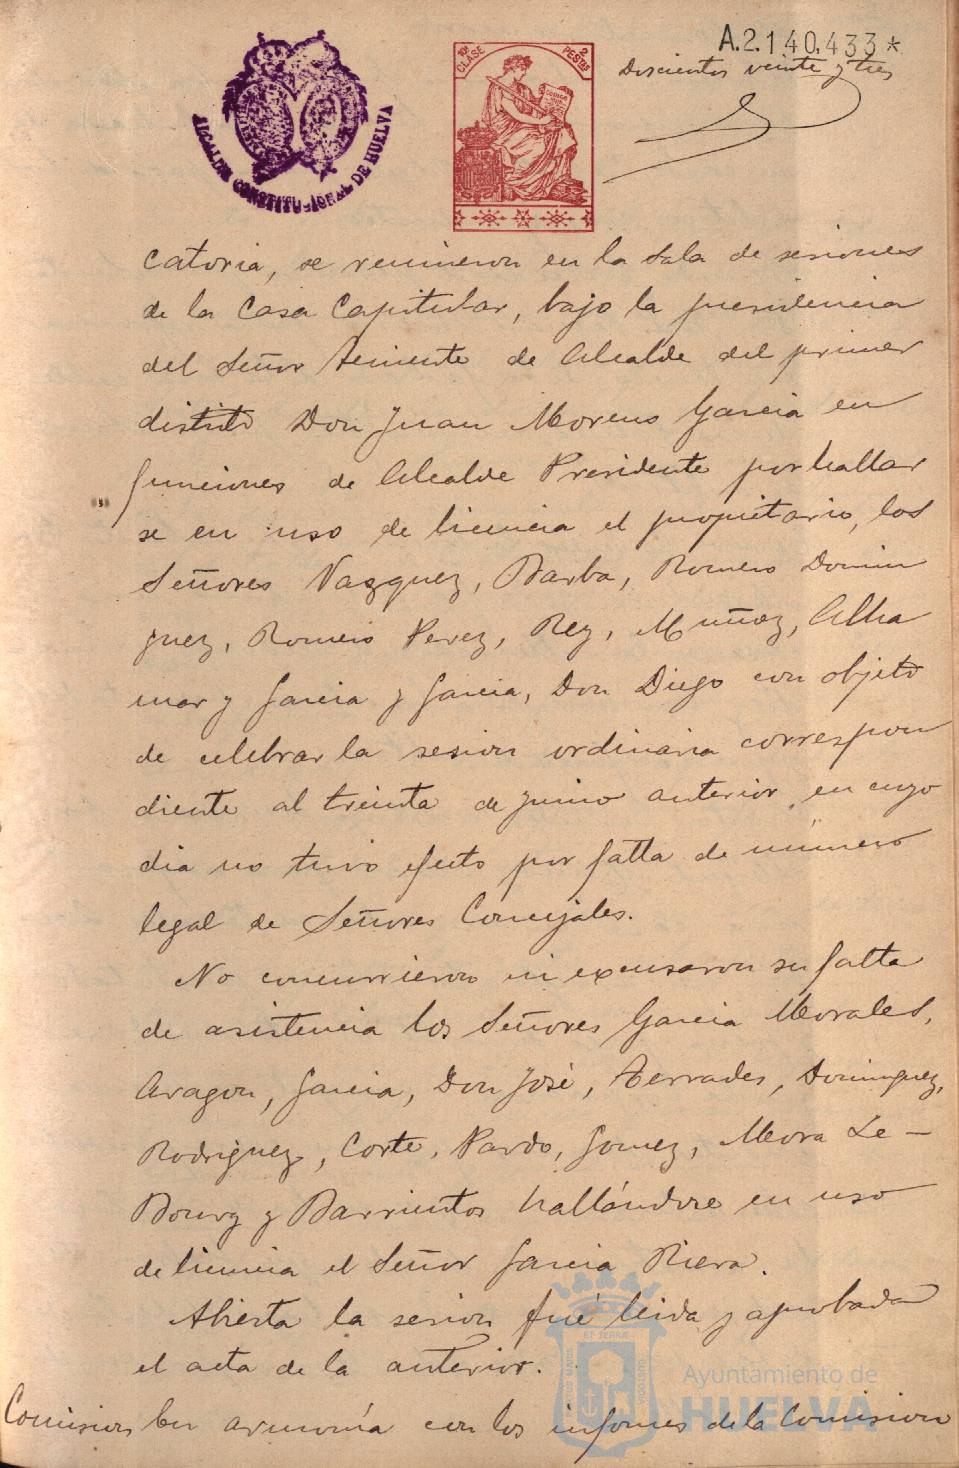 A.2.140.433*
Doscientos veinte y tres
ALCALDIA CONSTITUCIONAL DE HUELVA
10ª CLASE
2 PESETAS
catoria, se reunieron en la Sala de sesiones
de la Casa Capitular, bajo la presidencia
del Señor teniente de Alcalde del primer
distrito Don Juan Moreno Garcia en
funciones de Alcalde Presidente por hallar
se en uso de licencia el propietario, los
Señores Vazquez, Barba, Romero Domin
guez, Romero Perez, Rey, Muñoz, Alba
mar y Garcia y Garcia, Don Diego con objeto
de celebrar la sesion ordinaria correspon
diente al treinta de junio anterior, en cuyo
dia no tuvo efecto por falta de número
legal de Señores Concejales.
No concurrieron ni excusaron su falta
de asistencia los Señores Garcia Morales,
Aragon, Garcia, Don José, Terrades, Dominguez,
Rodriguez, Corte, Pardo, Gomez, Mora Le-
Bourg y Barrientos hallándose en uso
de licencia el Señor Garcia Riera.
Abierta la sesion fué leida y aprobada
el acta de la anterior.
Comision En armonía con los informes de la Comision
Ayuntamiento de
HUELVA